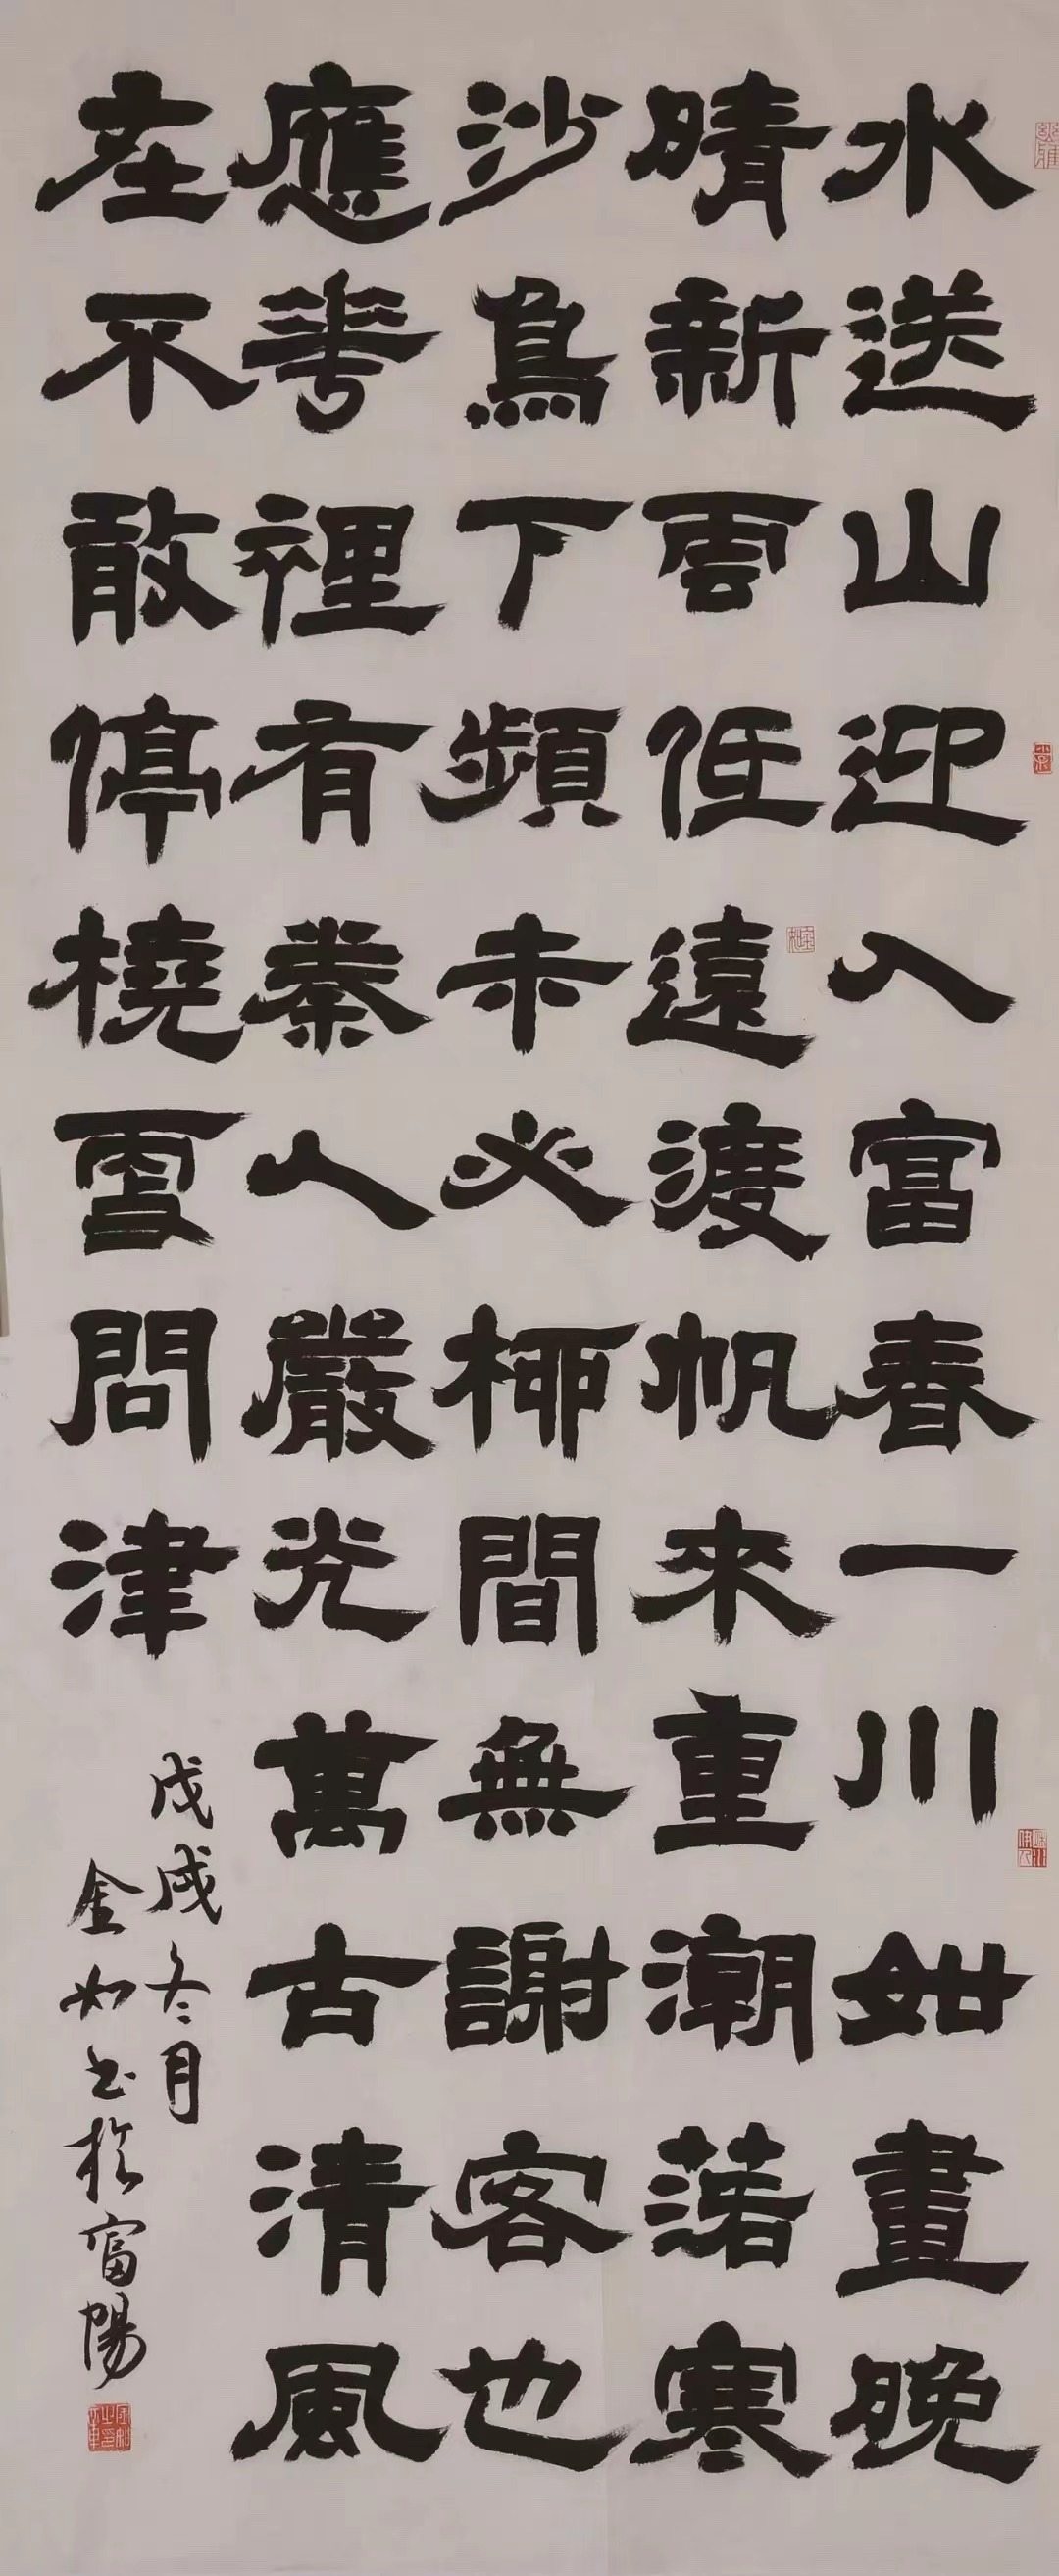 水送山迎入富春一川如畫晚
晴新雲低遠渡帆來重潮落寒
沙鳥下頻未必柳間無謝客也
應花裡有秦人嚴光萬古清風
在不敢停橈更問津
戊戌冬月
金如書於富陽